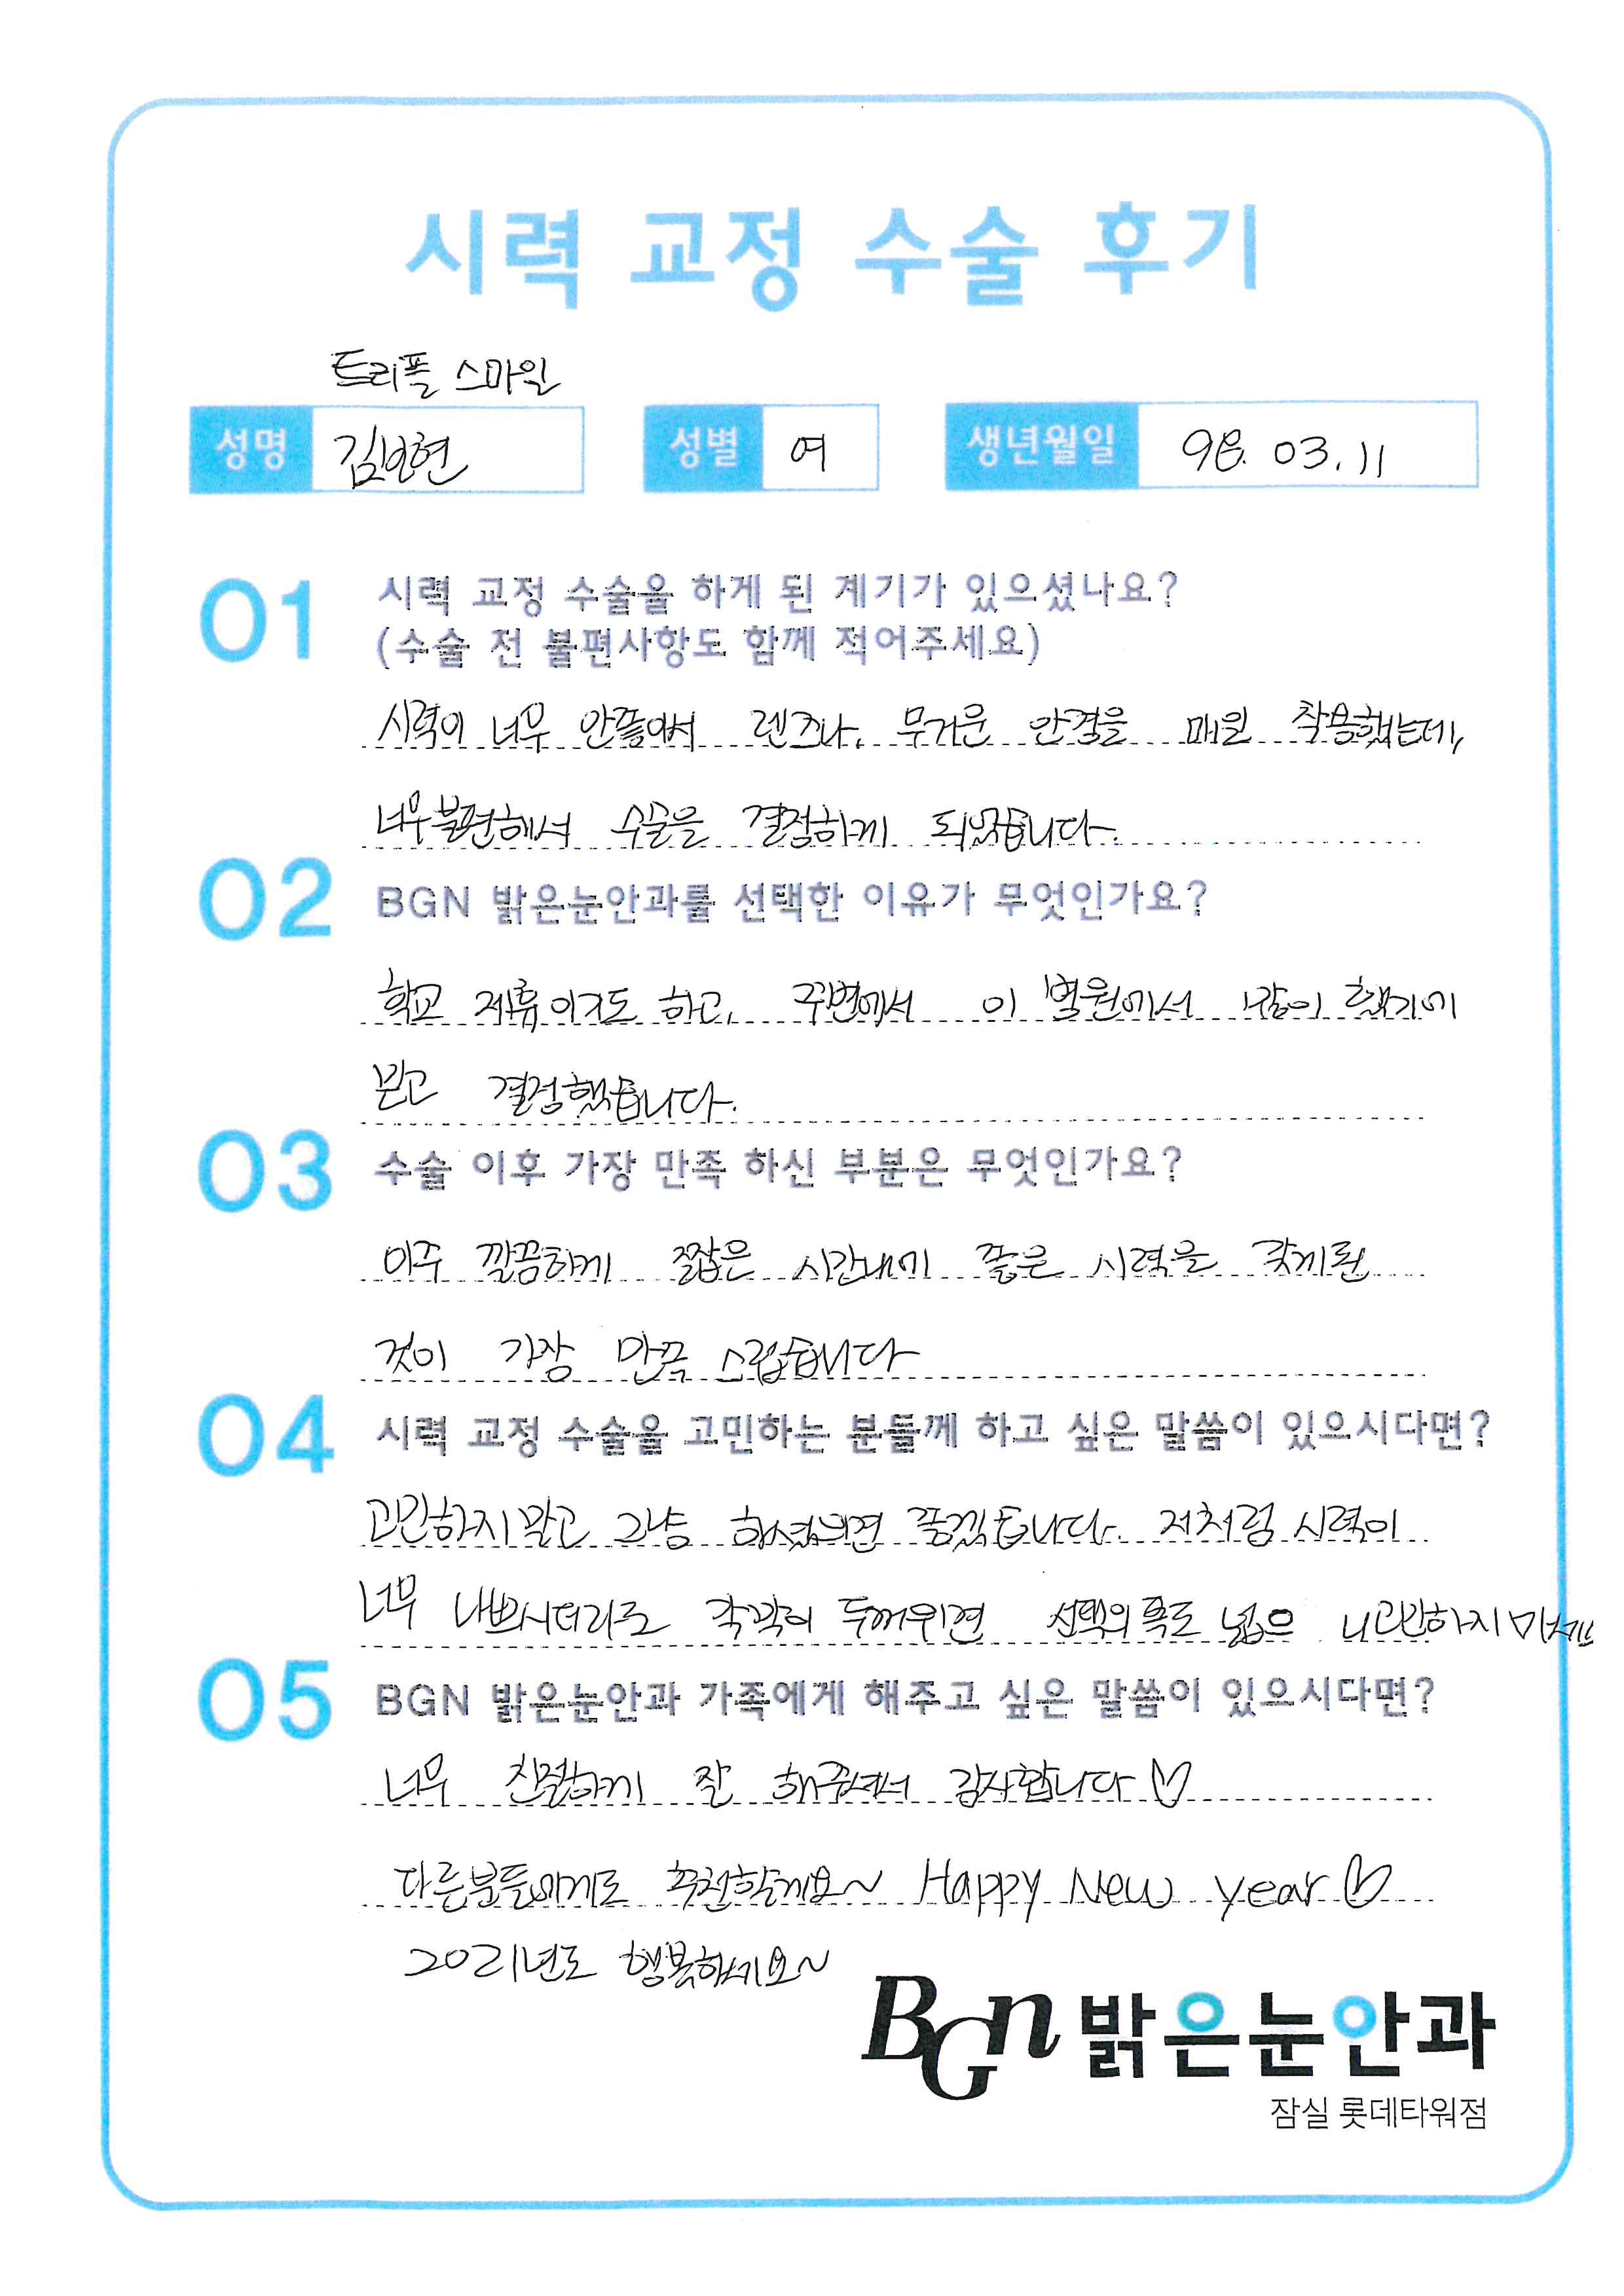 시력 교정 수술 후기
트리플 스마일
성명 성별 여 생년월일 98. 03. 11
01 시력 교정 수술을 하게 된 계기가 있으셨나요?
(수술 전 불편사항도 함께 적어주세요)
시력이 너무 안좋아서 렌즈나, 무거운 안경을 매일 착용했는데,
너무불편해서 수술을 결정하게 되었습니다.
02 BGN 밝은눈안과를 선택한 이유가 무엇인가요?
학교 제휴이기도 하고, 주변에서 이 병원에서 많이 했기에
믿고 결정했습니다.
03 수술 이후 가장 만족 하신 부분은 무엇인가요?
아주 깔끔하게 짧은 시간내에 좋은 시력을 갖게된
것이 가장 만족 스럽습니다
04 시력 교정 수술을 고민하는 분들께 하고 싶은 말씀이 있으시다면?
고민하지말고 그냥 하셨으면 좋겠습니다. 저처럼 시력이
너무 나쁘시더라도 각막이 두꺼우면 선택의폭도 넓으 니고민하지마세요
05 BGN 밝은눈안과 가족에게 해주고 싶은 말씀이 있으시다면?
너무 친절하게 잘 해주셔서 감사합니다♡
다른분들에게도 추천할게요~ Happy New year♡
2021년도 행복하세요~
BGn 밝은눈안과
잠실 롯데타워점